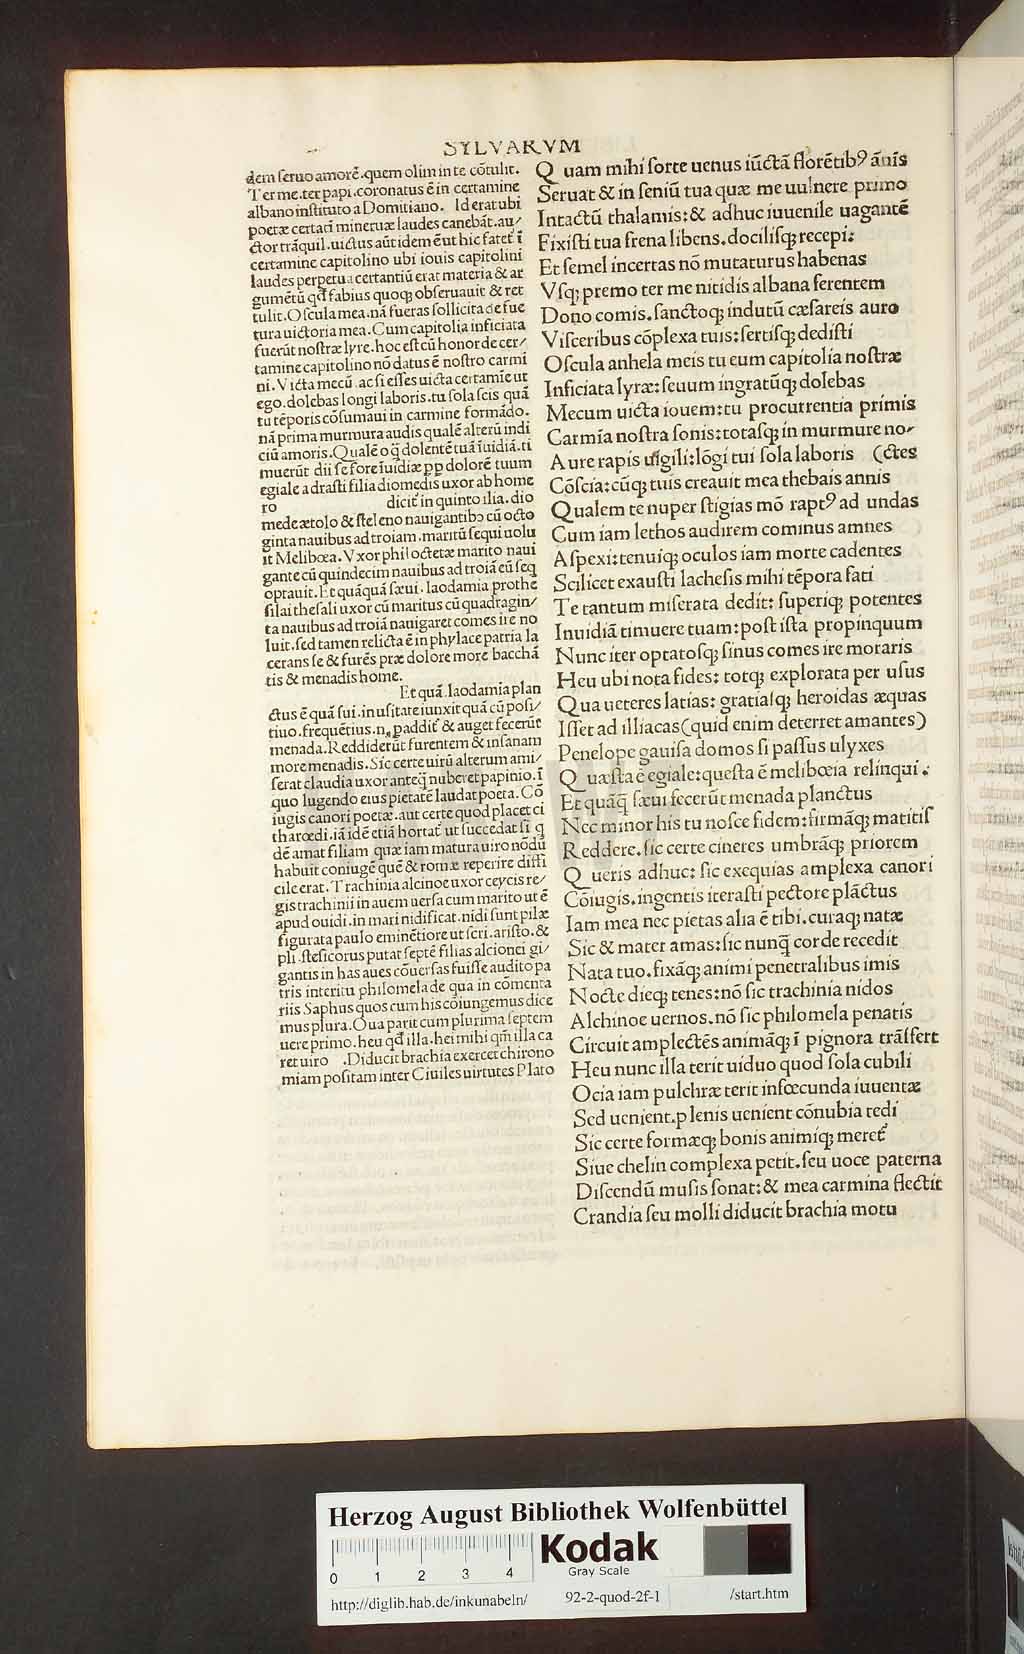 SYLVARVM
dem seruo amorē.quem olim in te cōtulit.
Ter me.ter papi.coronatus ē in certamine
albano instituto a Domitiano. Id erat ubi
poetæ certarī mineruæ laudes canebāt.au/
ctor trāquil.uictus aūt idem ē ut hic fatet ī
certamine capitolino ubi iouis capitolini
laudes perpetua certantiū erat materia & ar
gumētū qd fabius quoq; obseruauit & ret
tulit.Oscula mea.nā fueras sollicita de fue
tura uictoria mea.Cum capitolia inficiata
fuerūt nostræ lyre.hoc est cū honor de cer/
tamine capitolino nō datus ē nostro carmi
ni.Victa mecū.ac si esses uicta certamīe ut
ego.dolebas longi laboris.tu sola scis quā
tu tēporis cōsumaui in carmine formādo.
nā prima murmura audis qualē alterū indi
ciū amoris.Qualē o q̄ dolentē tuā īuidiā.ti
muerūt dii se fore īuidiæ pp dolorē tuum
egiale adrasti filia diomedis uxor ab home
ro dicit in quinto ilia.dio
mede ætolo & steleno nauigantibɔ cū octo
ginta nauibus ad troiam.maritū sequi uolu
it Melibœa.Vxor philoctetæ marito naui
gante cū quindecim nauibus ad troiā eū seq
optauit.Et quāquā sæui.laodamia prothe
silai thesali uxor cū maritus cū quadragin/
ta nauibus ad troiā nauigaret comes ire no
luit.sed tamen relicta ē in phylace patria la
cerans se & furēs præ dolore more bacchā
tis & menadis home.
Et quā.laodamia plan
ctus ē quā sui.inusitate iunxit quā cū posi/
tiuo.frequētius.n.paddit & auget fecerūt
menada.Reddiderūt furentem & insanam
more menadis.Sic certe uirū alterum ami/
serat claudia uxor anteq̄ nuberet papinio.ī
quo lugendo eius pietatē laudat poeta.Cō
iugis canori poetæ.aut certe quod placet ci
tharœdi.iā idē etiā hortat ut succedat si q
dē amat filiam quæ iam matura uiro nōdū
habuit coniugē quē & romæ reperire diffi
cile erat.Trachinia alcinoe uxor ceycis re/
gis trachinii in auem uersa cum marito ut ē
apud ouidi.in mari nidificat.nidi sunt pilæ
figurata paulo eminētiore ut scri.aristo.&
pli.stesicorus putat septē filias alcionei gi/
gantis in has aues cōuersas fuisse audito pa
tris interitu philomela de qua in cōmenta
riis Saphus quos cum his cōiungemus dice
mus plura.Oua parit cum plurima septem
uere primo.heu qd illa.hei mihi qm̄ illa ca
ret uiro .Diducit brachia exercet chirono
miam positam inter Ciuiles uirtutes Plato
Quam mihi sorte uenus iūctā florētib⁹ ānis
Seruat & in seniū tua quæ me uulnere primo
Intactū thalamis:& adhuc iuuenile uagantē
Fixisti tua frena libens.docilisq; recepi:
Et semel incertas nō mutaturus habenas
Vsq; premo ter me nitidis albana ferentem
Dono comis.sanctoq; indutū cæsareis auro
Visceribus cōplexa tuis:sertisq; dedisti
Oscula anhela meis tu eum capitolia nostræ
Inficiata lyræ:seuum ingratūq; dolebas
Mecum uicta iouem:tu procurrentia primis
Carmīa nostra sonis:totasq; in murmure no/
Aure rapis uigili:lōgi tui sola laboris (ctes
Cōscia:cūq; tuis creauit mea thebais annis
Qualem te nuper stigias mō rapt⁹ ad undas
Cum iam lethos audirem cominus amnes
Aspexi:tenuiq; oculos iam morte cadentes
Scilicet exausti lachesis mihi tēpora fati
Te tantum miserata dedit: superiq; potentes
Inuidiā timuere tuam:post ista propinquum
Nunc iter optatosq; sinus comes ire moraris
Heu ubi nota fides: totq; explorata per usus
Qua ueteres latias: gratiasq; heroidas æquas
Isset ad illiacas (quid enim deterret amantes)
Penelope gauisa domos si passus ulyxes
Quæsta ē egiale:questa ē melibœia relinqui.
Et quāq̄ sæui fecerūt menada planctus
Nec minor his tu nosce fidem:firmāq; matitis
Reddere.sic certe cineres umbrāq; priorem
Queris adhuc: sic exequias amplexa canori
Cōiugis.ingentis iterasti pectore plāctus
Iam mea nec pietas alia ē tibi.curaq; natæ
Sic & mater amas:sic nunq̄ corde recedit
Nata tuo.fixāq; animi penetralibus imis
Nocte dieq; tenes:nō sic trachinia nidos
Alchinoe uernos.nō sic philomela penatis
Circuit amplectēs animāq; ī pignora trāsfert
Heu nunc illa terit uiduo quod sola cubili
Ocia iam pulchræ terit infœcunda iuuentæ
Sed uenient.plenis uenient cōnubia tedi
Sic certe formæq; bonis animiq; meret
Siue chelin complexa petit.seu uoce paterna
Discendū musis sonat:& mea carmina flectit
Crandia seu molli diducit brachia motu
Herzog August Bibliothek Wolfenbüttel
Kodak
Gray Scale
0 1 2 3 4
http://diglib.hab.de/inkunabeln/ 92-2-quod-2f-1 /start.htm